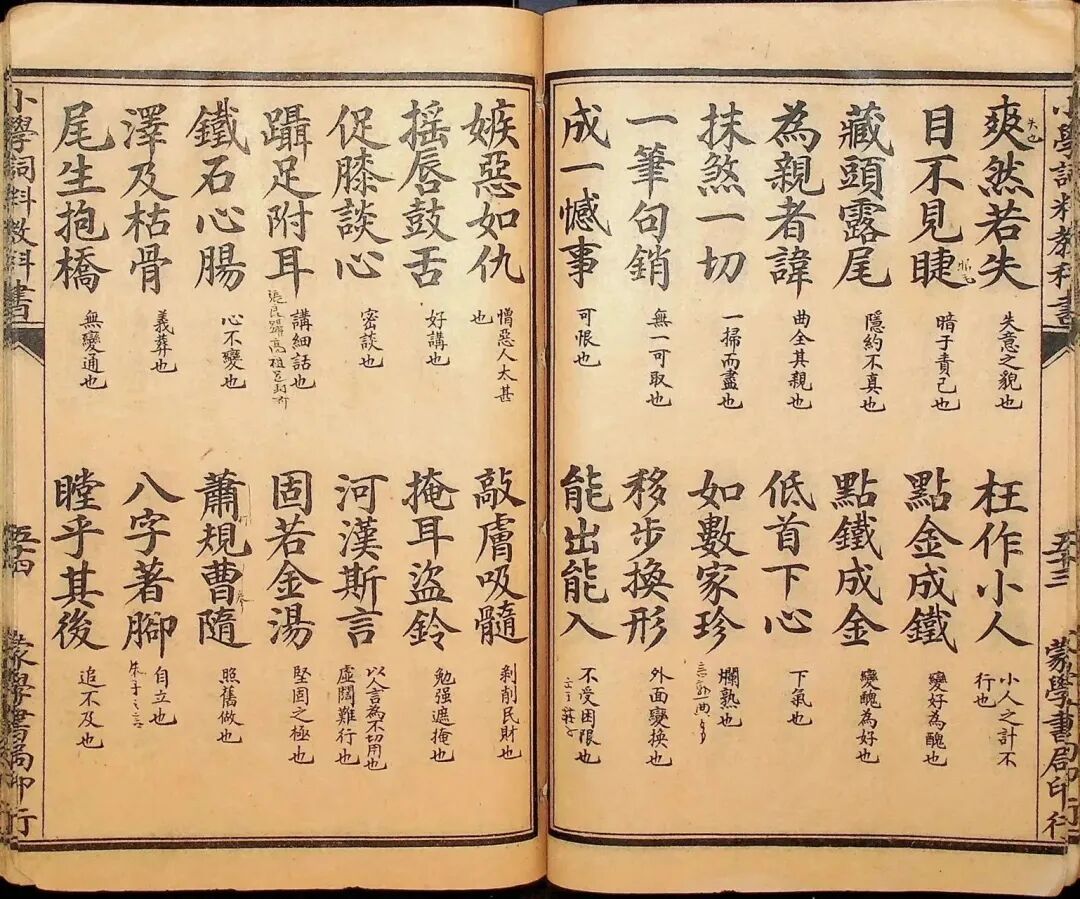 小學詞料教科書
五十三
蒙學書局印行
爽然若失
失意之貌也
枉作小人
小人之計不
行也
目不見睫
暗于責己也
點金成鐵
變好為醜也
藏頭露尾
隱約不真也
點鐵成金
變醜為好也
為親者諱
曲全其親也
低首下心
下氣也
抹煞一切
一掃而盡也
如數家珍
爛熟也
一筆句銷
無一可取也
移步換形
外面變換也
成一憾事
可恨也
能出能入
不受困限也
嫉惡如仇
憎惡人太甚
也
敲膚吸髓
剥削民財也
搖唇鼓舌
好講也
掩耳盜鈴
勉强遮掩也
促膝談心
密談也
河漢斯言
以人言為不切用也
虛闊難行也
躡足附耳
講細話也
固若金湯
堅固之極也
鐵石心腸
心不變也
蕭規曹隨
照舊做也
澤及枯骨
義葬也
八字著腳
自立也
朱子之言
尾生抱橋
無變通也
瞠乎其後
追不及也
小學詞料教科書
五十四
蒙學書局印行